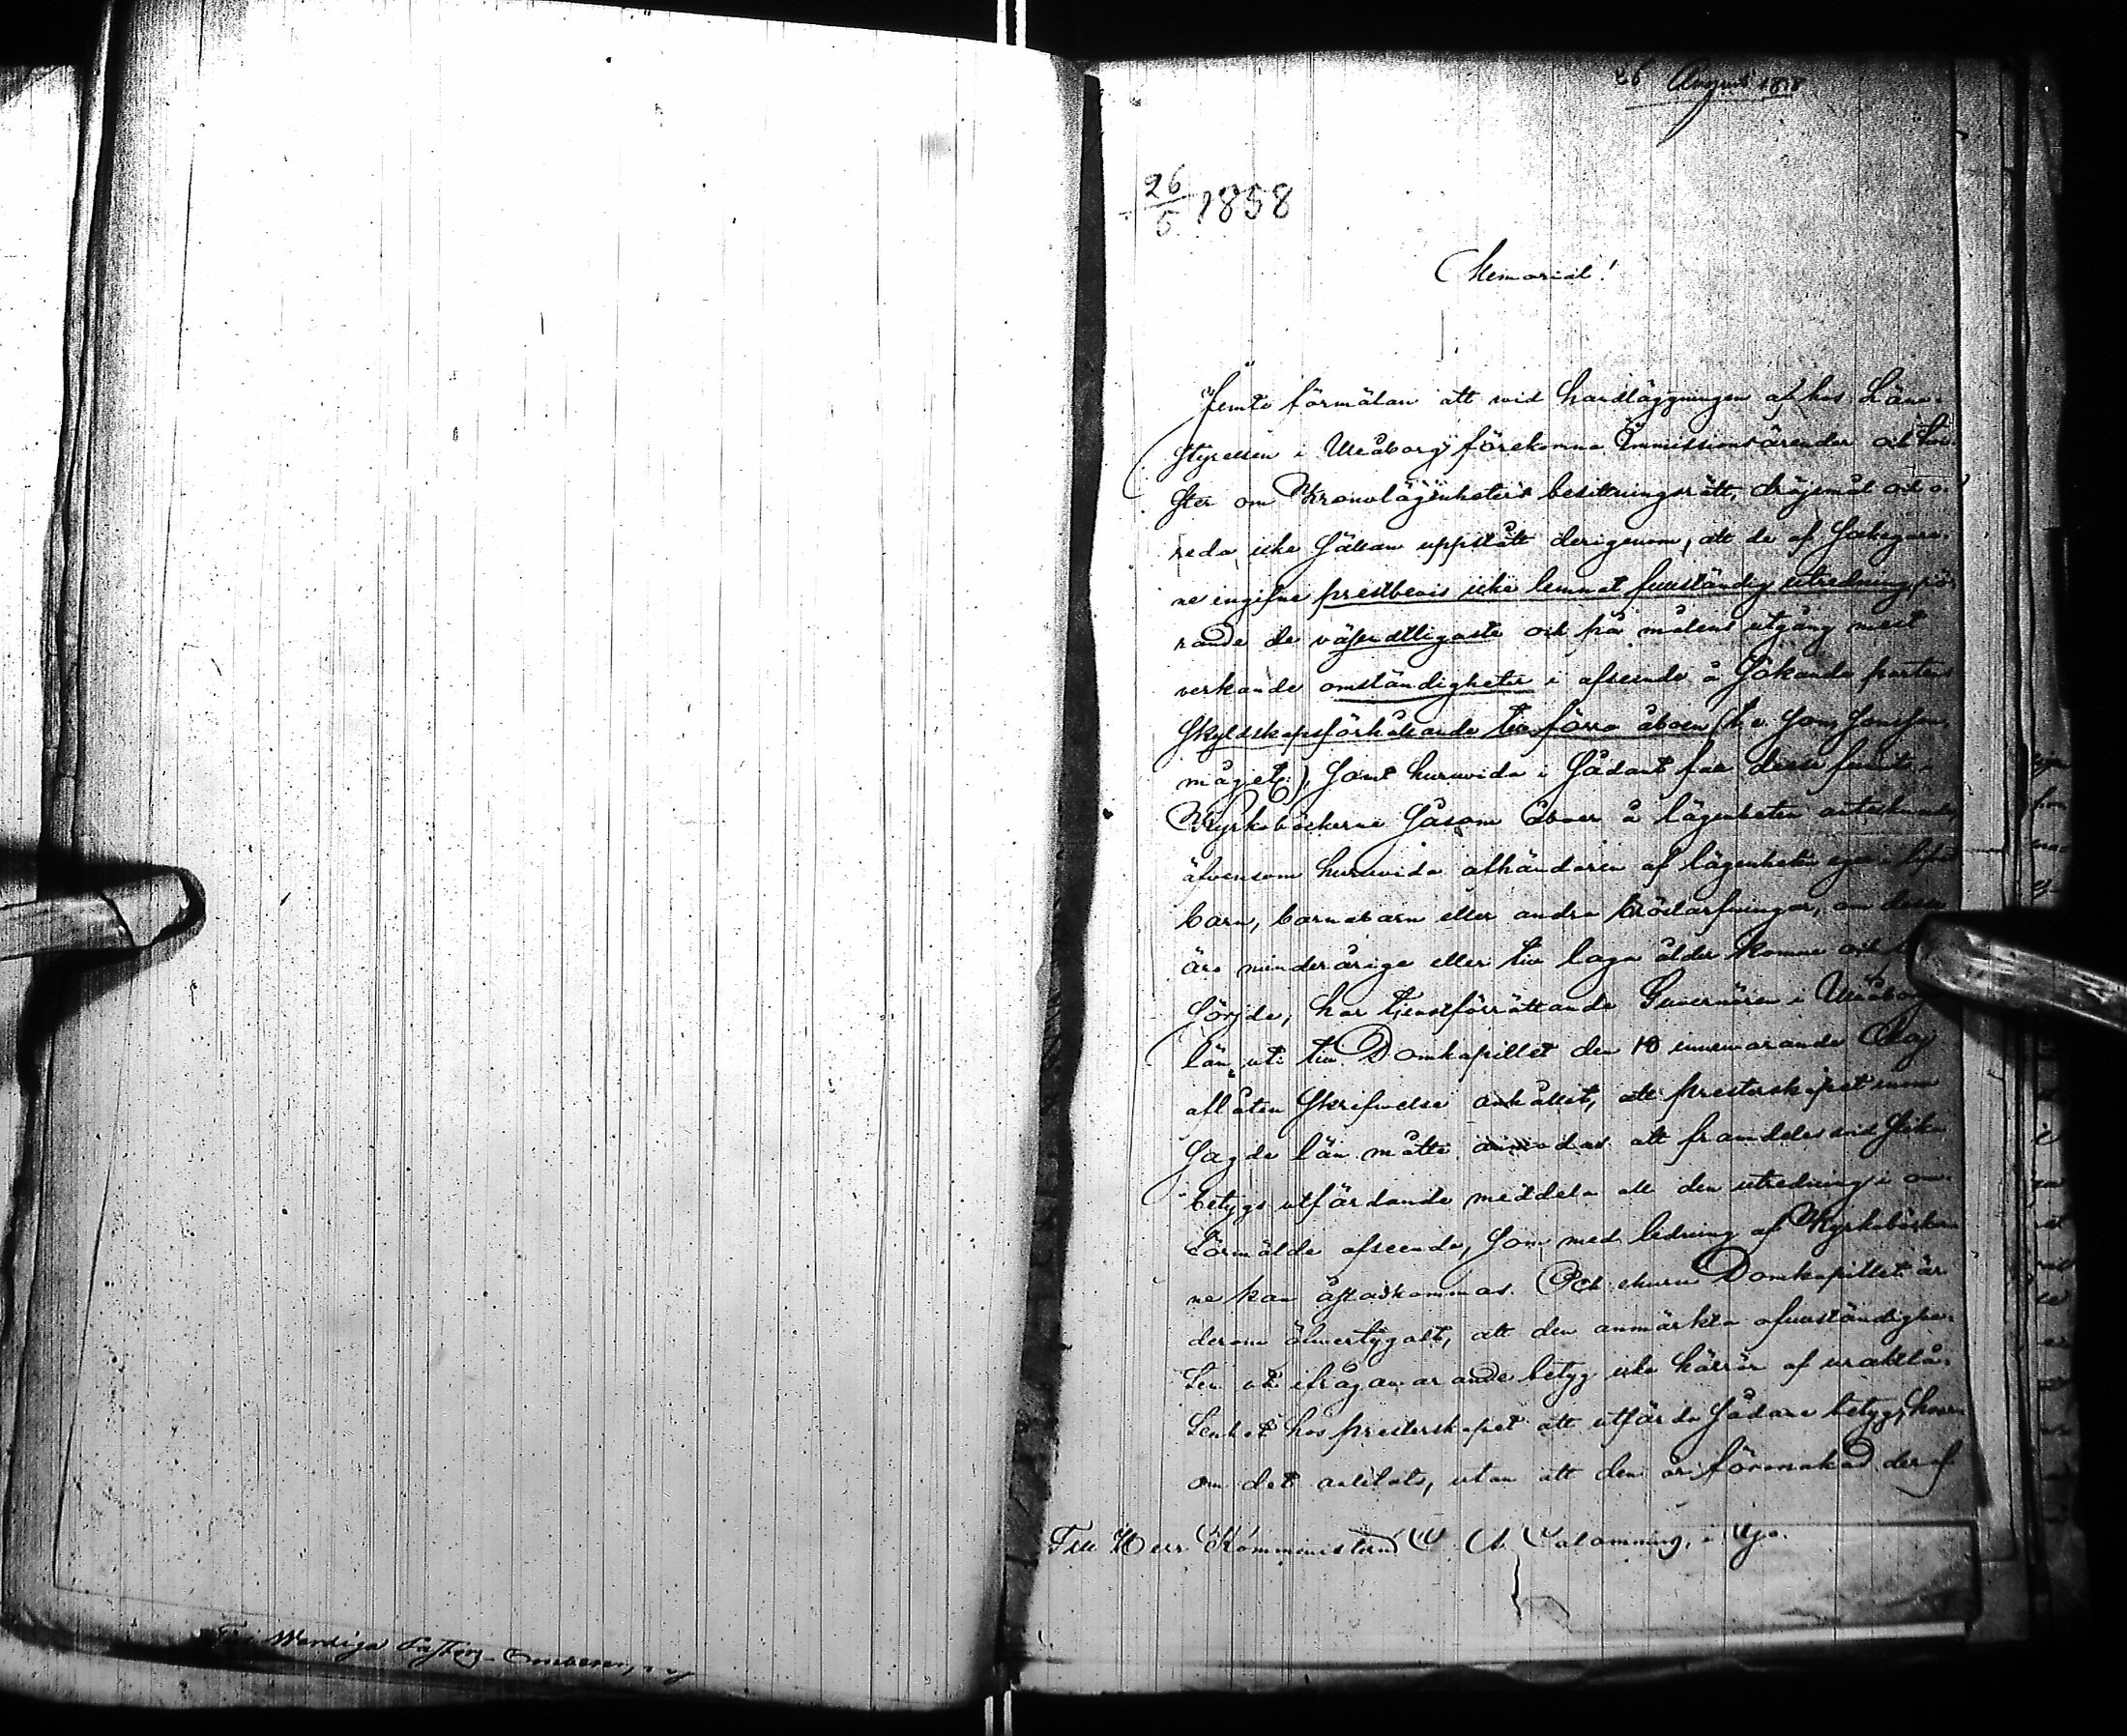 26 August 1858
26/5 1858
Memorial!
Jemte förmälan att vid handläggningen af hos Läne-
styrelsen i Uleåborg förekomne Immissionsärender och
ster om Kronolägenheters besittningsrätt, dröjsmål och o-
reda icke sällan uppstått derigenom, att de af Sökegare-
ne ingifne prestbevis icke lemnat fullständig utredning rö-
rande de väsendtligaste och på målens utgång mest
verkande omständigheter i afseende å Sökande partens
Skyldskapsförhållande till förra åboen (t. e. Son, Sonson,
måg etc.), samt huruvida i sådant fall desse funnits i
Kyrkoböckerne såsom åboer å lägenheten antecknade,
äfvensom huruvida afhändaren af lägenheten eger i lifvet
barn, barnabarn eller andra bröstarfvingar, om desse
äro minderårige eller till laga ålder komne och
sörjde, har tjenstförrättande Guvernören i Uleåborgs
län uti till Domkapitlet den 10 innevarande Maj
aflåten Skrifvelse anhållit, att presterskapet inom
sagde län måtte anmodas att framdeles vid slika
betygs utfärdande meddela all den utredning i om-
förmälde afseende, som med ledning af Kyrkoböcker-
ne kan åstadkommas. Och ehuru Domkapitlet är
derom öfvertygadt, att den anmärkta ofullständighe-
ten uti ifrågavarande betyg icke härrör af uraktlå-
tenhet hos presterskapet att utfärda sådane betyg, hvar-
om det anlitats, utan att den är förorsakad deraf
Till Herr Komministern C. A. Calamnius, i Ijo.
Till Werdiga Pastors Embetet, i